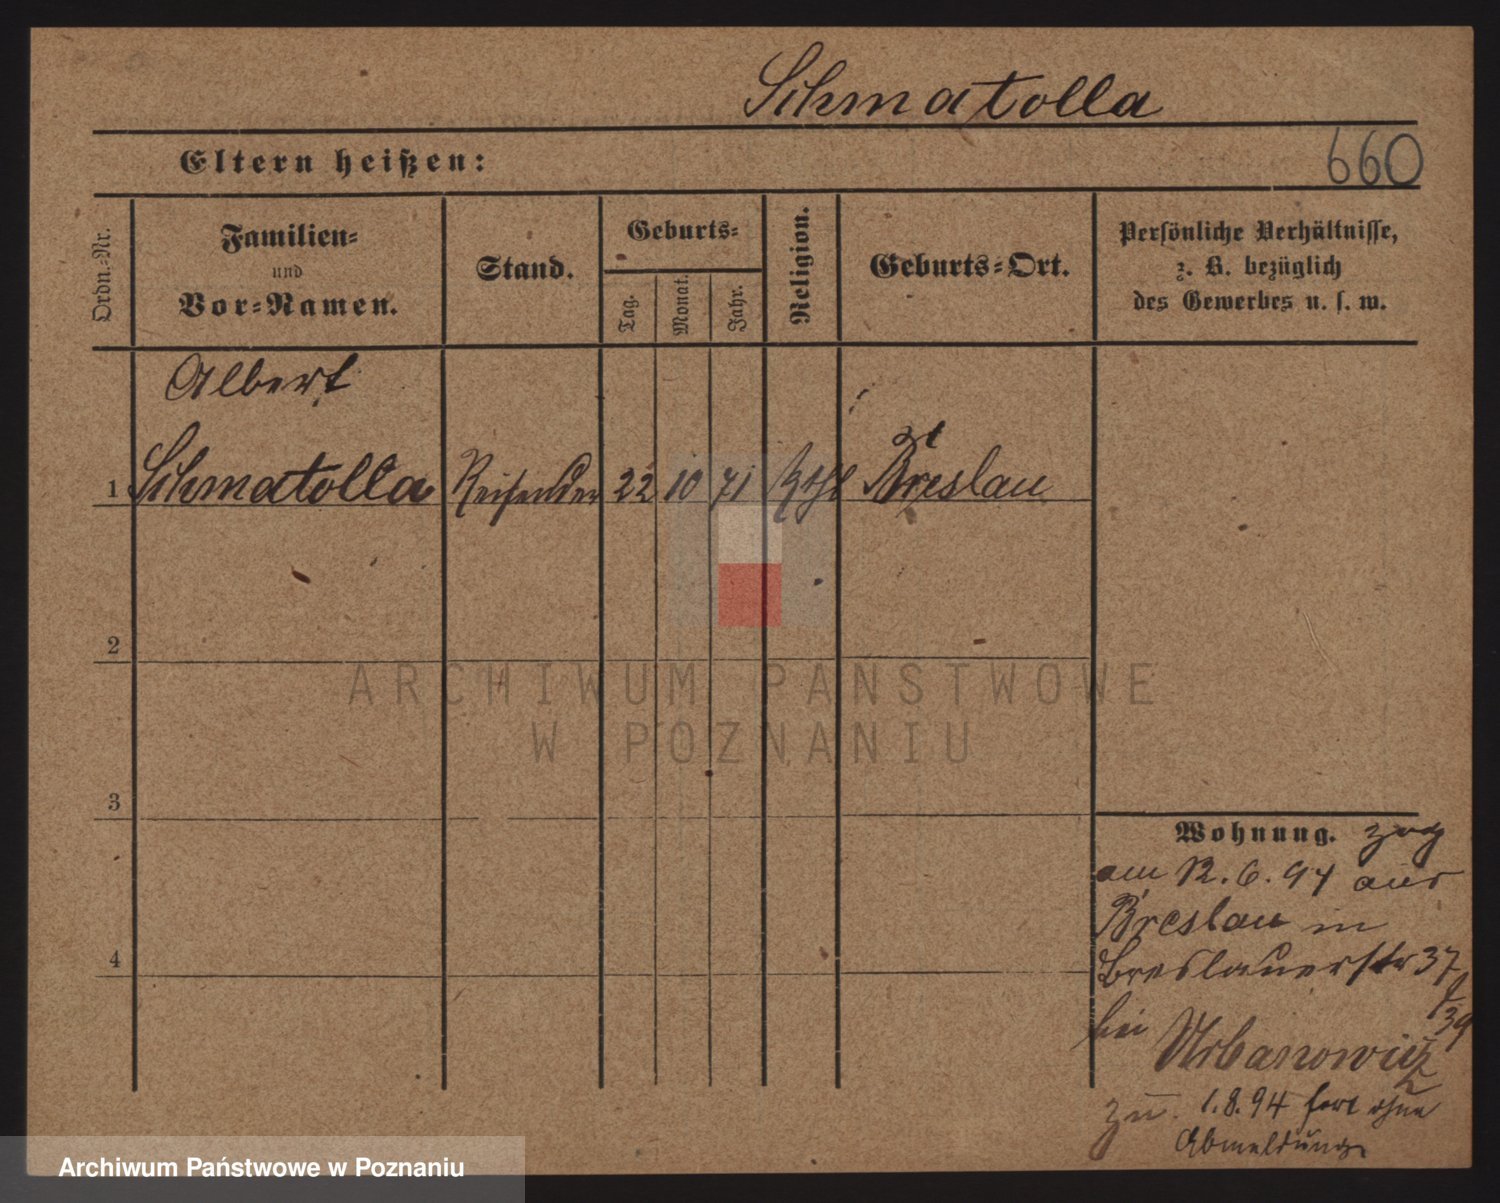 Schmatolla
Eltern heißen:
660
Ordn.-Nr.
Familien-
und
Vor-Namen.
Stand.
Geburts-
Tag.
Monat.
Jahr.
Religion.
Geburts-Ort.
Persönliche Verhältnisse,
z. B. bezüglich
des Gewerbes u. s. w.
Albert
1 Schmatolla Reisender 22 10 71 Kthl Breslau
2
ARCHIWUM PAŃSTWOWE
W POZNANIU
3
Wohnung. zog
am 12. 6. 94 aus
Breslau in
Breslauerstr 37
39
bei Urbanowicz
1.8.94 fort ohne
Abmeldung
4
Archiwum Państwowe w Poznaniu